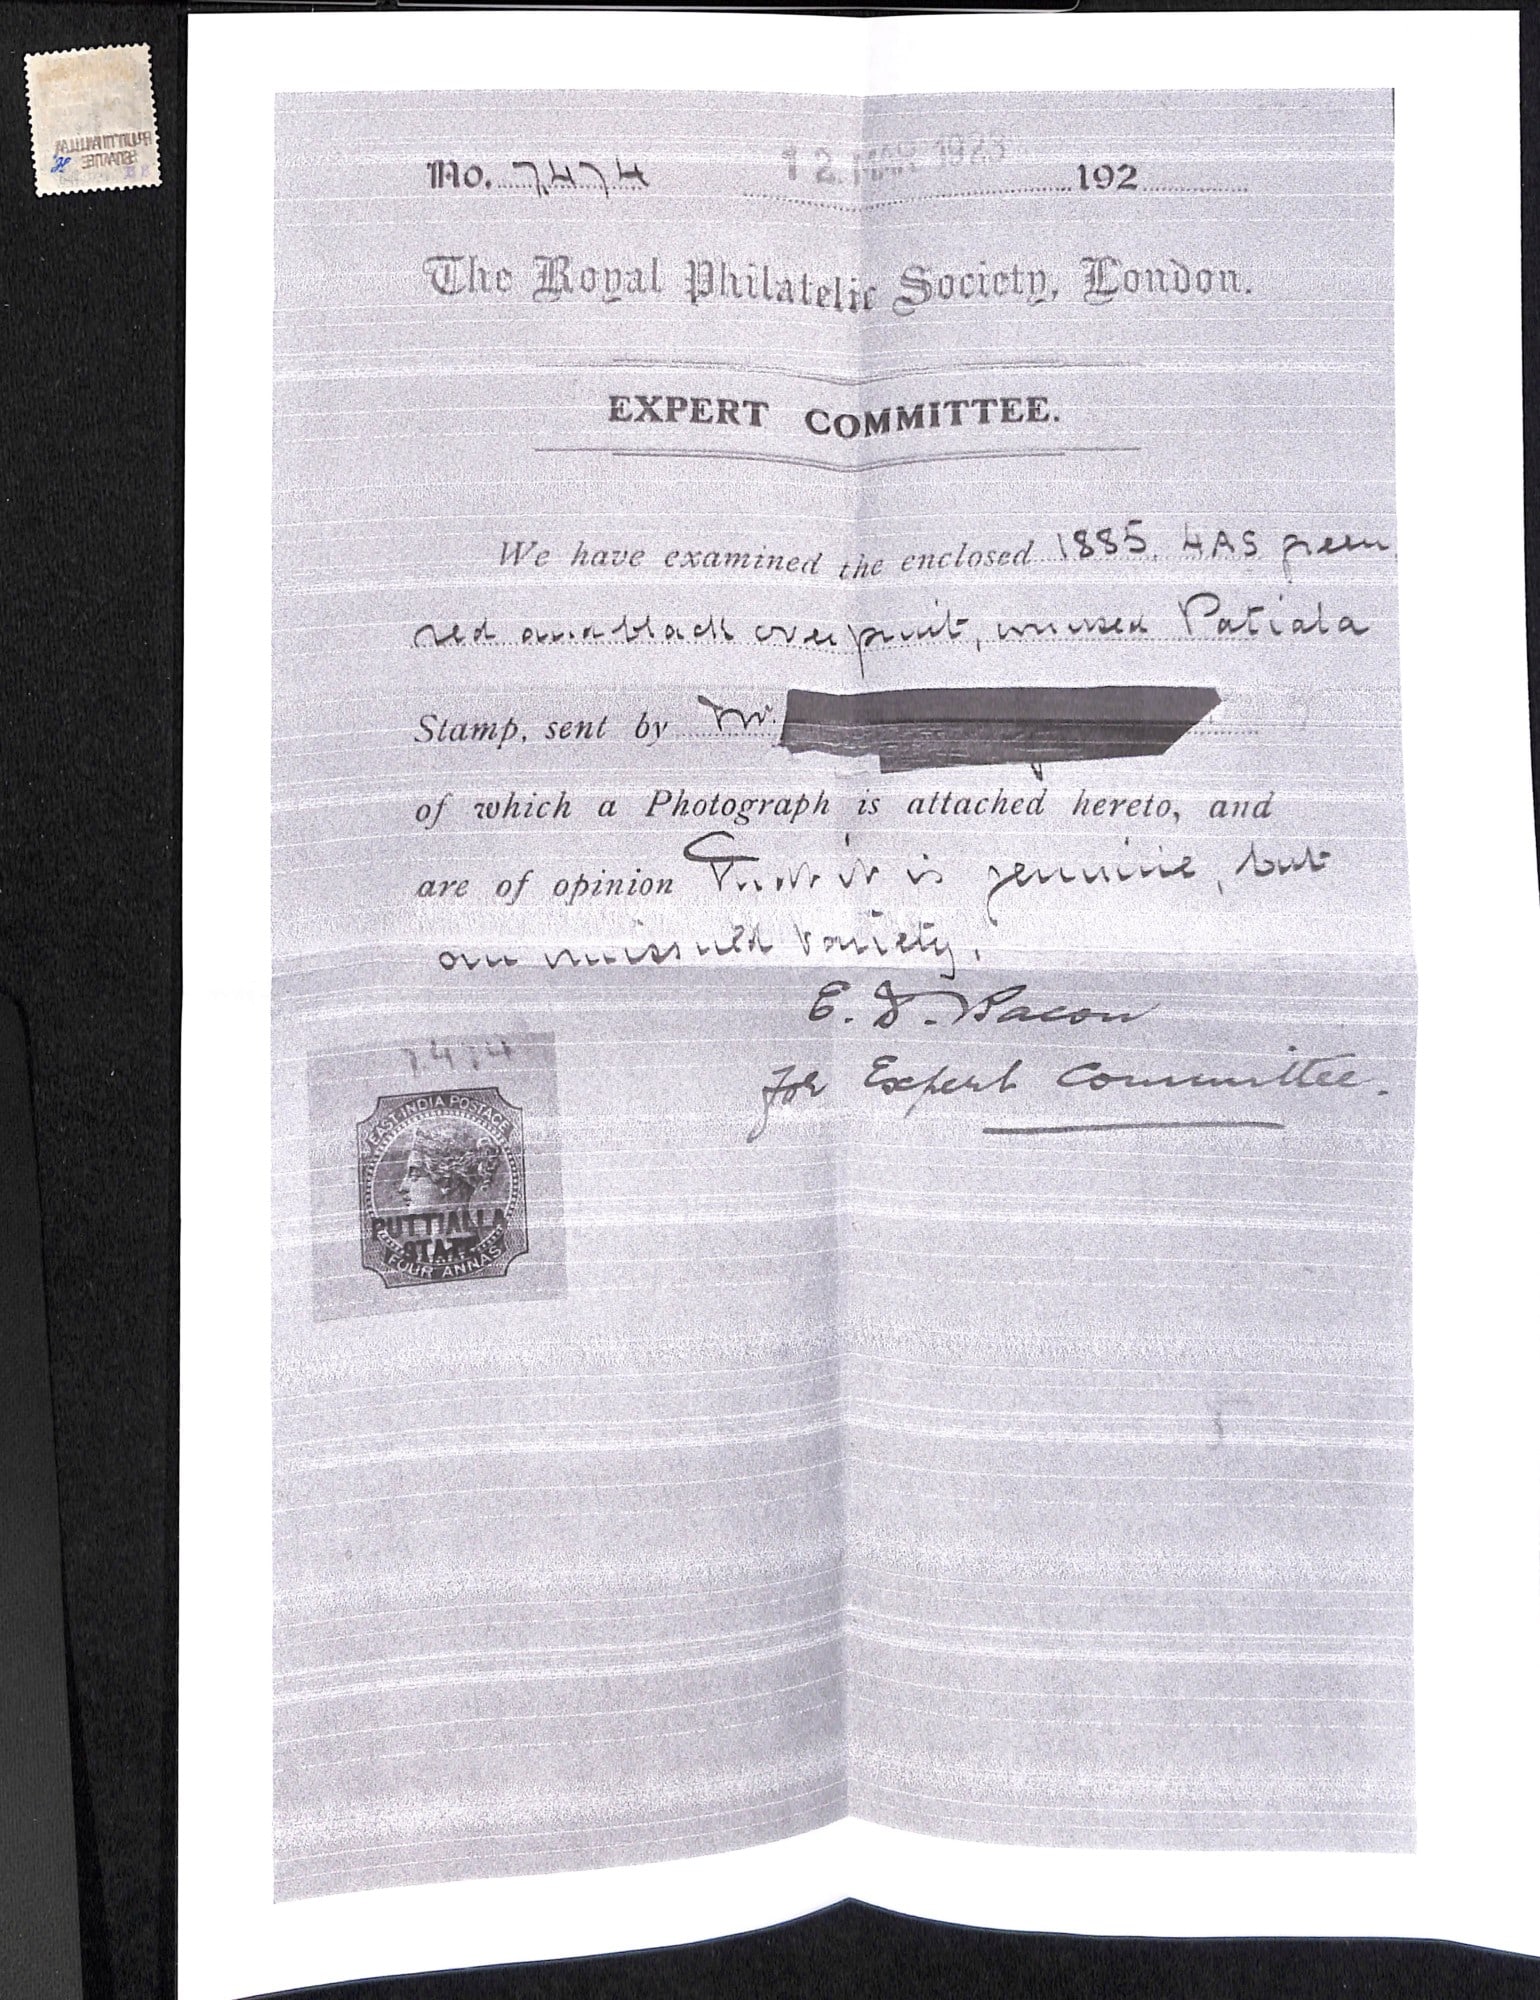 No. 7,474 12 MAR 1923 192
The Royal Philatelic Society, London.
EXPERT COMMITTEE.
We have examined the enclosed 1885. 4AS green
red and black overprint, unused Patiala
Stamp, sent by Mr.
of which a Photograph is attached hereto, and
are of opinion that it is genuine, but
an unissued variety.
E. D. Bacon
for Expert Committee.
7.474
EAST INDIA POSTAGE
PUTTIALLA
STATE
FOUR ANNAS